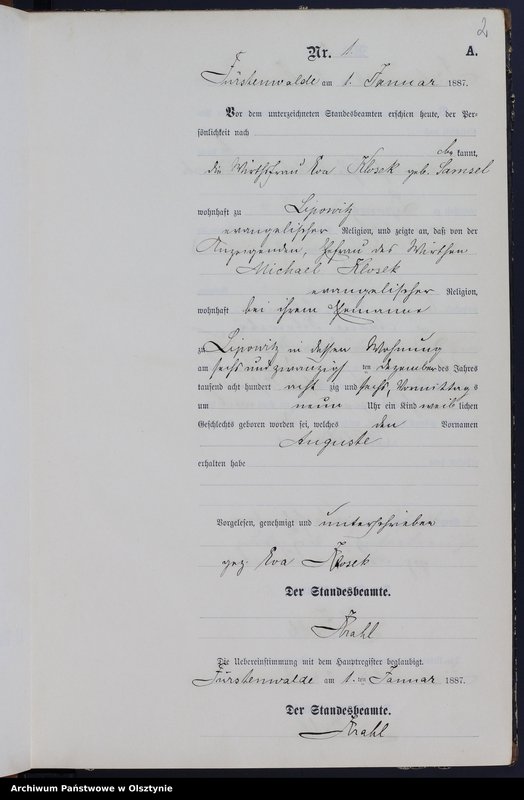 2
Nr. 1. A.
Fürstenwalde am 1. Januar 1887.
Vor dem unterzeichneten Standesbeamten erschien heute, der Per-
sönlichkeit nach
be kannt,
die Wirthsfrau Eva Klosek geb. Samsel
wohnhaft zu Lipowitz
evangelischer Religion, und zeigte an, daß von der
Anzeigenden, Ehefrau des Wirthen
Michael Klosek
evangelischer Religion,
wohnhaft bei ihrem Ehemanne
zu Lipowitz in dessen Wohnung
am sechs und zwanzigsten Dezember des Jahres
tausend acht hundert acht zig und sechs, Vormittags
um neun Uhr ein Kind weib lichen
Geschlechts geboren worden sei, welches den Vornamen
Auguste
erhalten habe
Vorgelesen, genehmigt und unterschrieben
gez. Eva Klosek
Der Standesbeamte.
Krahl
Die Uebereinstimmung mit dem Hauptregister beglaubigt.
Fürstenwalde am 1. ten Januar 1887.
Der Standesbeamte.
Krahl
Archiwum Państwowe w Olsztynie